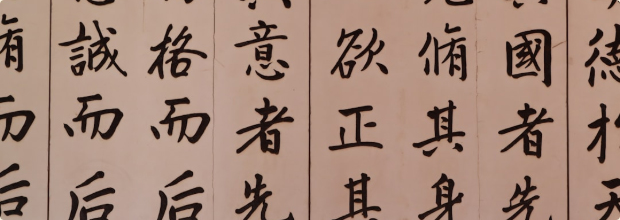 德於天
國者先
脩其身
欲正其
意者先
格而后
誠而后
脩而后